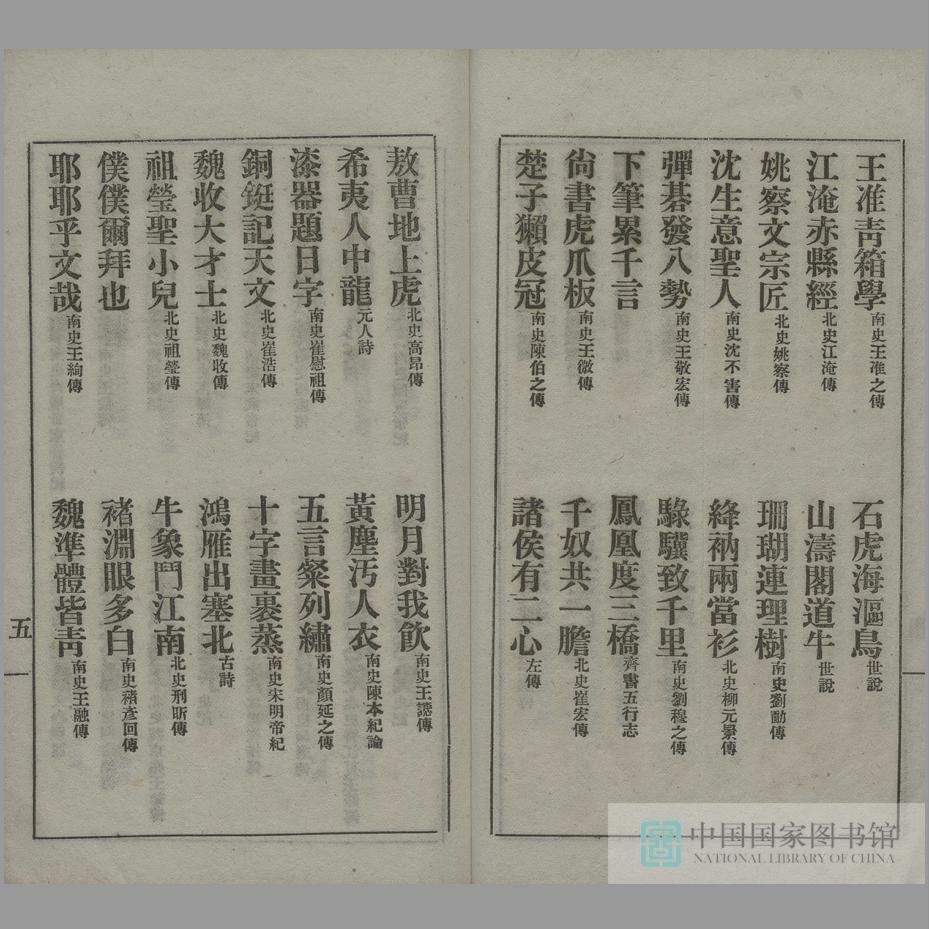 王准靑箱學南史王准之傳　石虎海漚鳥世說
江淹赤縣經北史江淹傳　山濤閣道牛世說
姚察文宗匠北史姚察傳　珊瑚連理樹南史劉勔傳
沈生意聖人南史沈不害傳　絳衲兩當衫北史柳元景傳
彈碁發八勢南史王敬宏傳　騄驥致千里南史劉穆之傳
下筆累千言　鳳凰度三橋齊書五行志
尙書虎爪板南史王微傳　千奴共一膽北史崔宏傳
楚子獺皮冠南史陳伯之傳　諸侯有二心左傳
敖曹地上虎北史高昂傳　明月對我飮南史王譓傳
希夷人中龍元人詩　黃塵汚人衣南史陳本紀論
漆器題日字南史崔慰祖傳　五言粲列繡南史顏延之傳
銅鋌記天文北史崔浩傳　十字畫裹蒸南史宋明帝紀
魏收大才士北史魏收傳　鴻雁出塞北古詩
祖瑩聖小兒北史祖瑩傳　牛象鬥江南北史刑昕傳
僕僕爾拜也　褚淵眼多白南史褚彥回傳
耶耶乎文哉南史王絢傳　魏準體皆靑南史王融傳
五
中国国家图书馆
NATIONAL LIBRARY OF CHINA